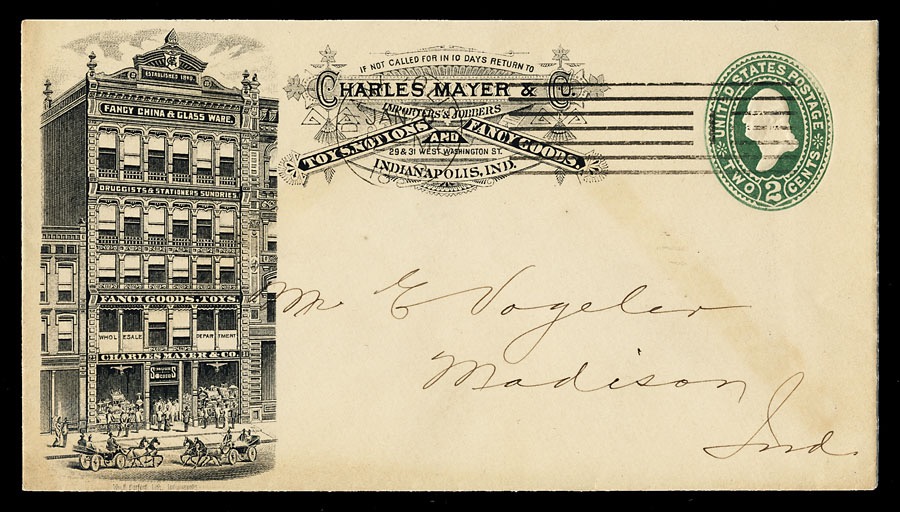 ESTABLISHED 1840.
FANCY CHINA & GLASS WARE.
DRUGGISTS & STATIONERS SUNDRIES
FANCY GOODS, TOYS,
WHOLESALE DEPARTMENT
CHARLES MAYER & CO.
IF NOT CALLED FOR IN 10 DAYS RETURN TO
CHARLES, MAYER & CO.
IMPORTERS & JOBBERS
TOYS, NOTIONS AND FANCY GOODS.
29 & 31 WEST WASHINGTON ST.
INDIANAPOLIS, IND.
JAN
UNITED STATES POSTAGE
TWO 2 CENTS
Mr E Vogeler
Madison
Ind.